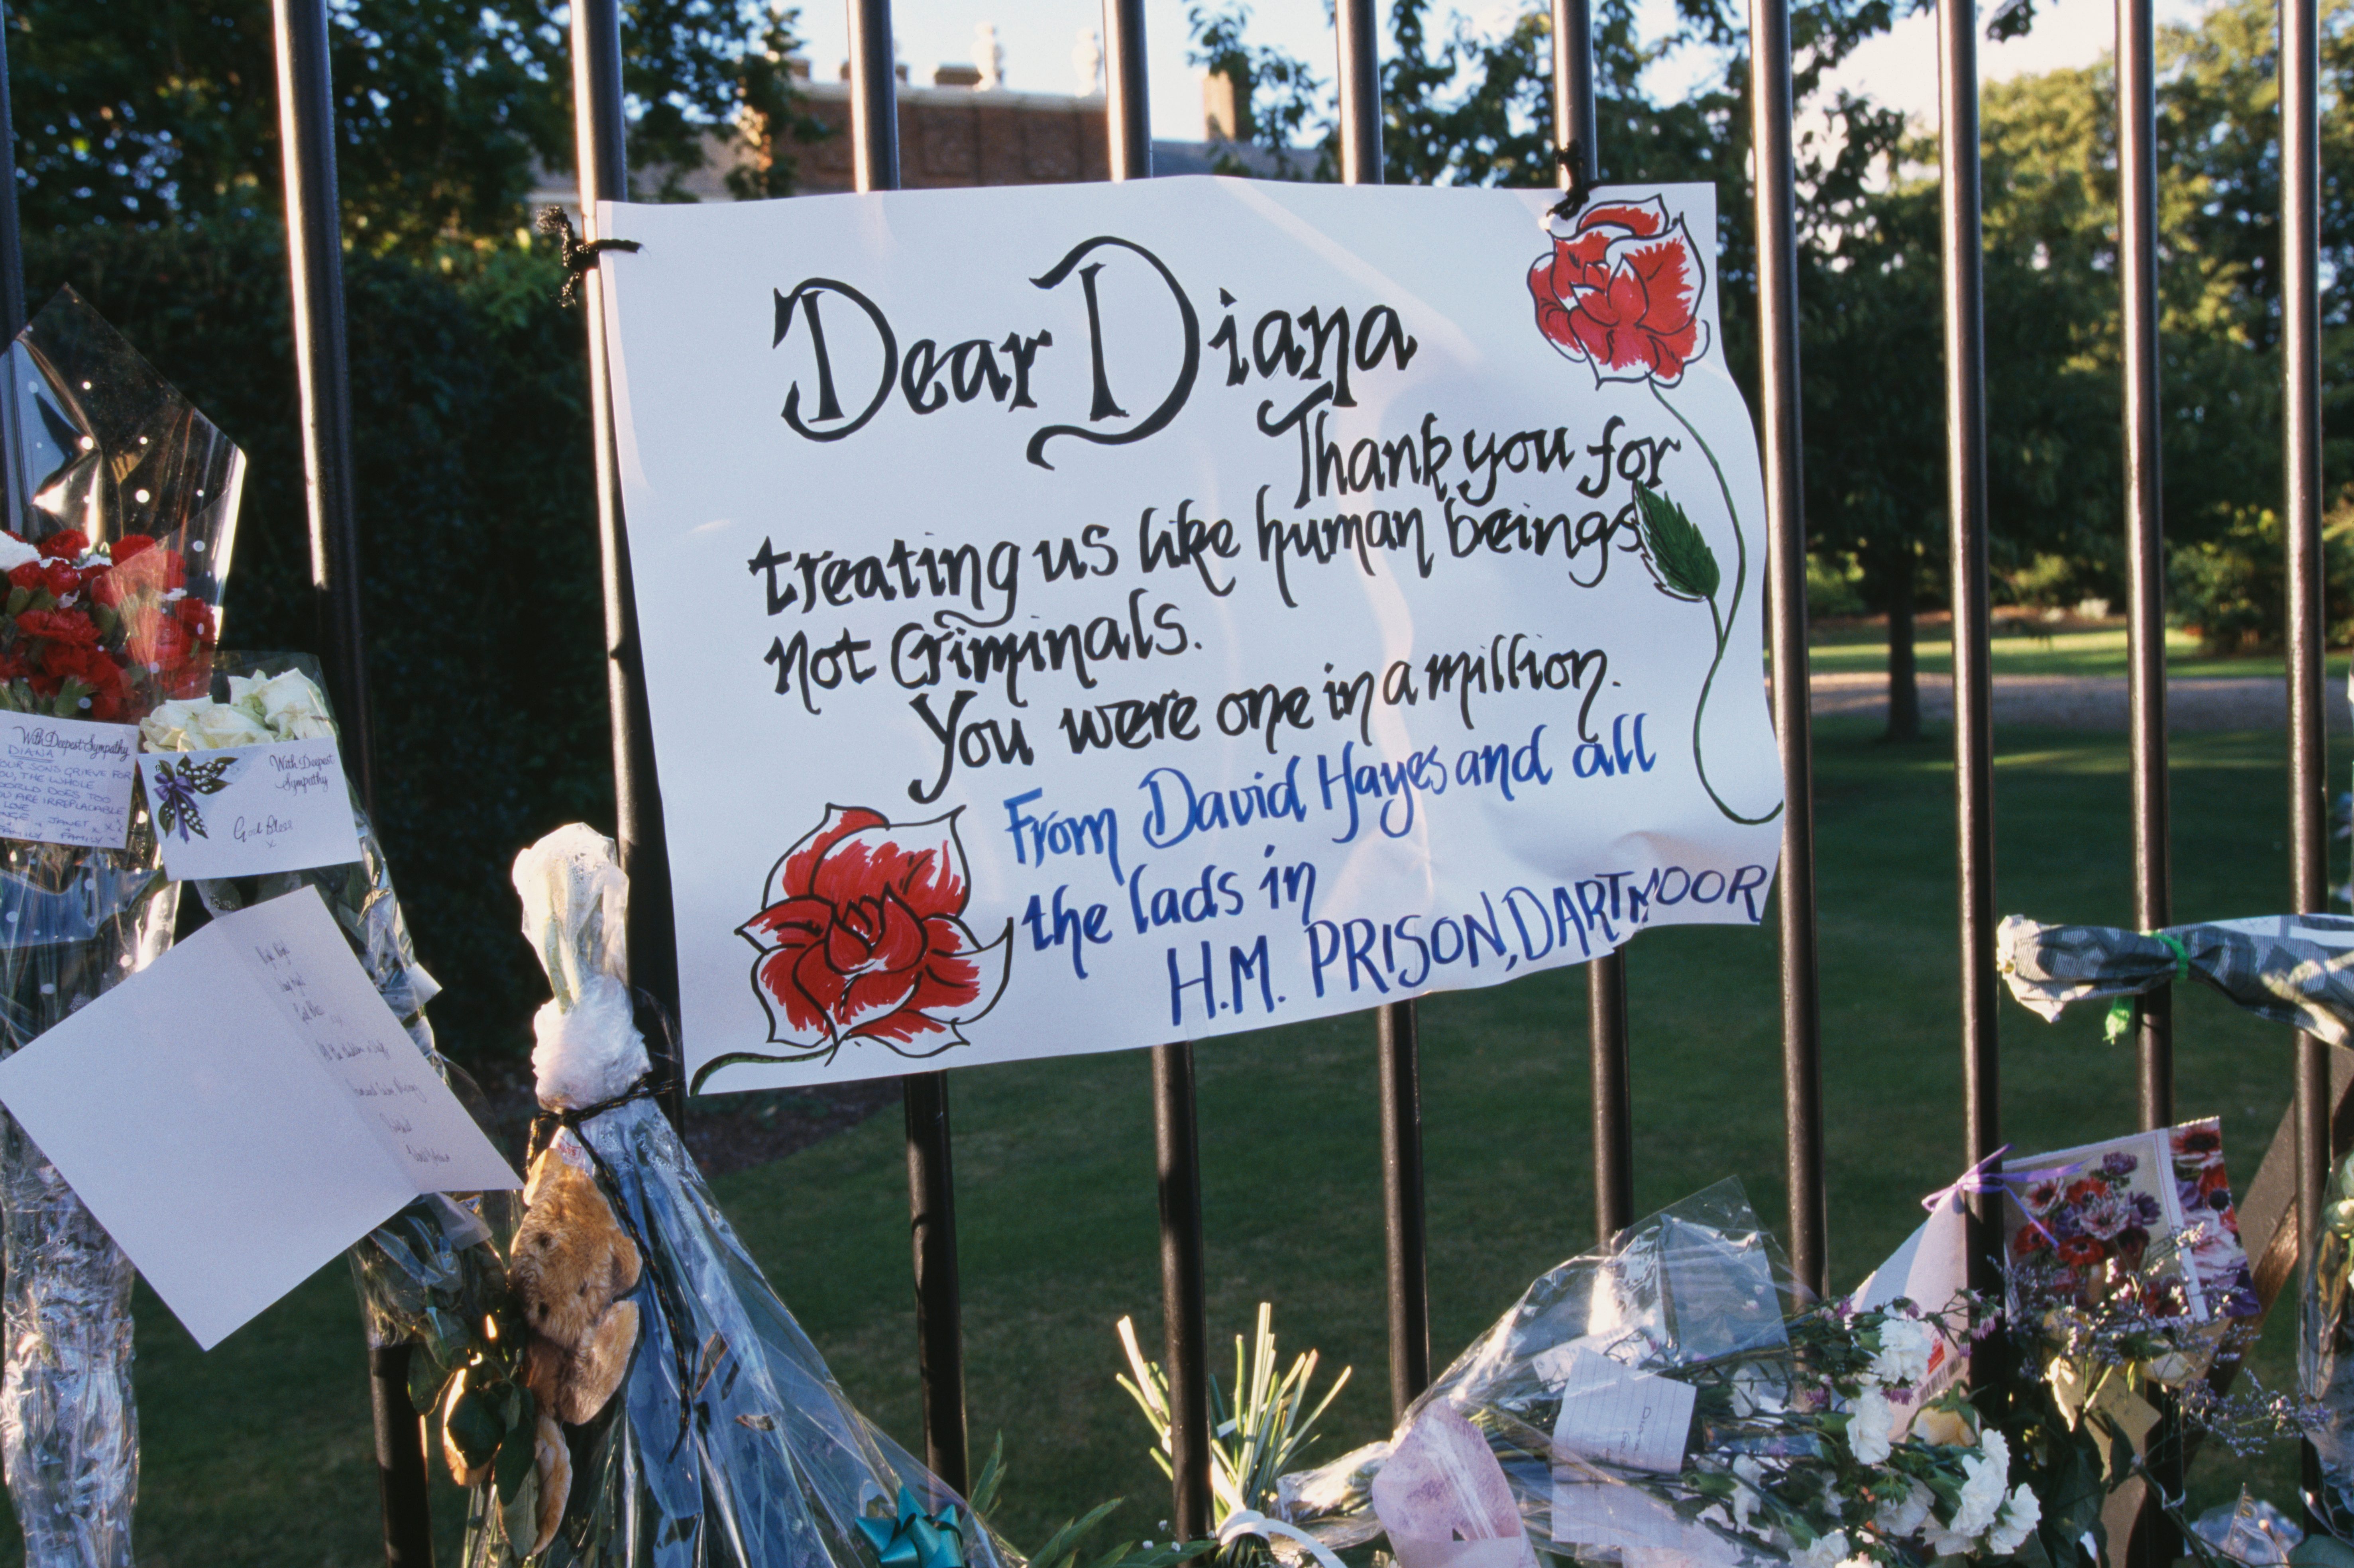 Dear Diana
Thank you for
treating us like human beings
not Criminals.
You were one in a million.
From David Hayes and all
the lads in
H.M. PRISON, DARTMOOR
With Deepest Sympathy
DIANA
OUR SONS GRIEVE FOR
YOU, THE WHOLE
WORLD DOES TOO
YOU ARE IRREPLACABLE
LOVE
JANET
FAMILY FAMILY
With Deepest
Sympathy
God Bless
x